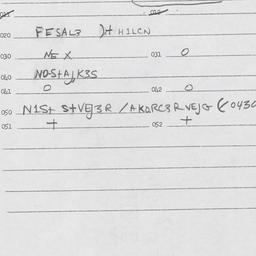 011 012
020 FESAL3 )+ H1LCN
030 NE X 031 O
040 NO-S+AJK3S
041 O 042 O
050 N1S+ S+VEJ3R / AKDRC3RVEJG (0430
051 + 052 +